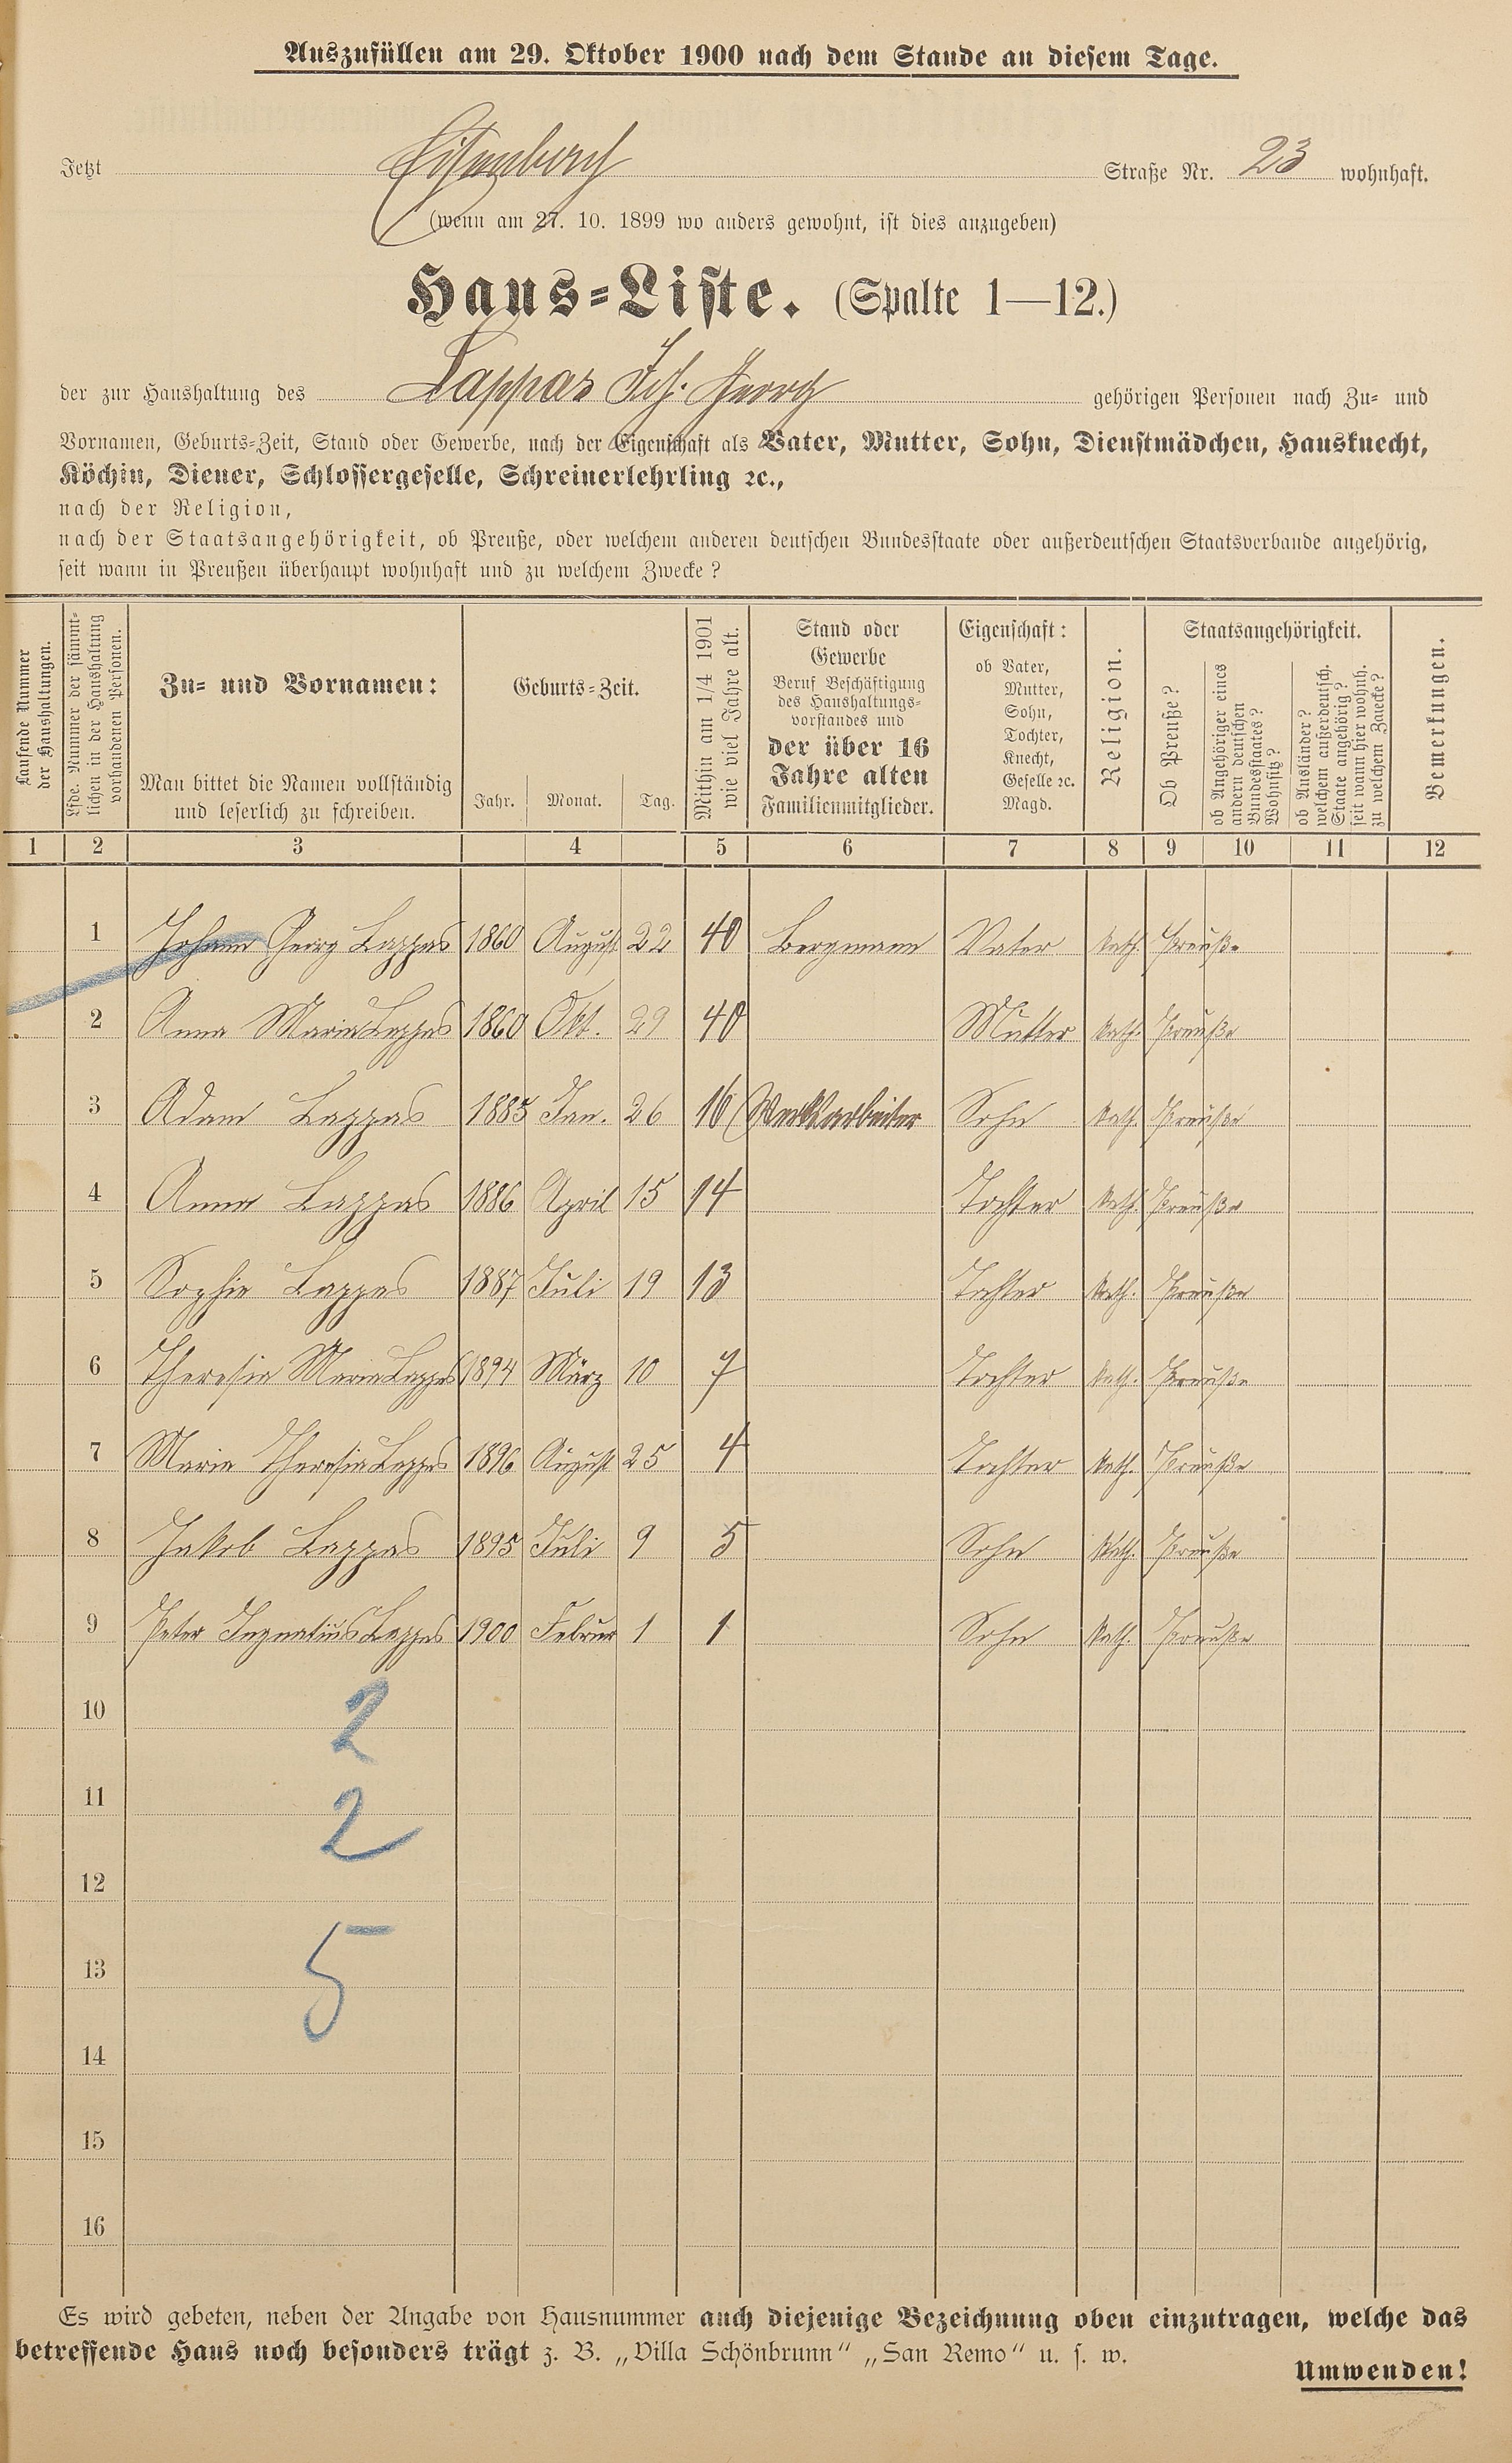 Auszufüllen am 29. Oktober 1900 nach dem Stande an diesem Tage.
Jetzt Straße Nr. 23 wohnhaft.
(wenn am 27. 10. 1899 wo anders gewohnt, ist dies anzugeben)
Haus-Liste. (Spalte 1—12.)
der zur Haushaltung des Lappas Joh. Georg gehörigen Personen nach Zu- und
Vornamen, Geburts-Zeit, Stand oder Gewerbe, nach der Eigenschaft als Vater, Mutter, Sohn, Dienstmädchen, Hausknecht,
Köchin, Diener, Schlossergeselle, Schreinerlehrling ꝛc.,
nach der Religion,
nach der Staatsangehörigkeit, ob Preuße, oder welchem anderen deutschen Bundesstaate oder außerdeutschen Staatsverbande angehörig,
seit wann in Preußen überhaupt wohnhaft und zu welchem Zwecke?
Laufende Nummer
der Haushaltungen.
Lfde. Nummer der sämmt-
lichen in der Haushaltung
vorhandenen Personen.
Zu- und Vornamen:
Man bittet die Namen vollständig
und leserlich zu schreiben.
Geburts-Zeit.
Jahr. Monat. Tag.
Mithin am 1/4 1901
wie viel Jahre alt.
Stand oder
Gewerbe
Beruf Beschäftigung
des Haushaltungs-
vorstandes und
der über 16
Jahre alten
Familienmitglieder.
Eigenschaft:
ob Vater,
Mutter,
Sohn,
Tochter,
Knecht,
Geselle ꝛc.
Magd.
Religion.
Staatsangehörigkeit.
Ob Preuße?
ob Angehöriger eines
andern deutschen
Bundesstaates?
Wohnsitz?
ob Ausländer?
welchem außerdeutsch.
Staate angehörig?
seit wann hier wohnh.
zu welchem Zwecke?
Bemerkungen.
1 2 3 4 5 6 7 8 9 10 11 12
1 Johann Georg Lappas 1860 August 22 40 Bergmann Vater kath. Preuße
2 Anna Maria Lappas 1860 Okt. 29 40 Mutter kath. Preuße
3 Adam Lappas 1885 Jan. 26 16 Werksarbeiter Sohn kath. Preuße
4 Anna Lappas 1886 April 15 14 Tochter kath. Preuße
5 Sophie Lappas 1887 Juli 19 13 Tochter kath. Preuße
6 Theresia Maria Lappas 1894 März 10 7 Tochter kath. Preuße
7 Maria Theresia Lappas 1896 August 25 4 Tochter kath. Preuße
8 Jakob Lappas 1895 Juli 9 5 Sohn kath. Preuße
9 Peter Ingnatius Lappas 1900 Februar 1 1 Sohn kath. Preuße
10 2
11 2
12
13 5
14
15
16
Es wird gebeten, neben der Angabe von Hausnummer auch diejenige Bezeichnung oben einzutragen, welche das
betreffende Haus noch besonders trägt z. B. „Villa Schönbrunn“ „San Remo“ u. s. w.
Umwenden!